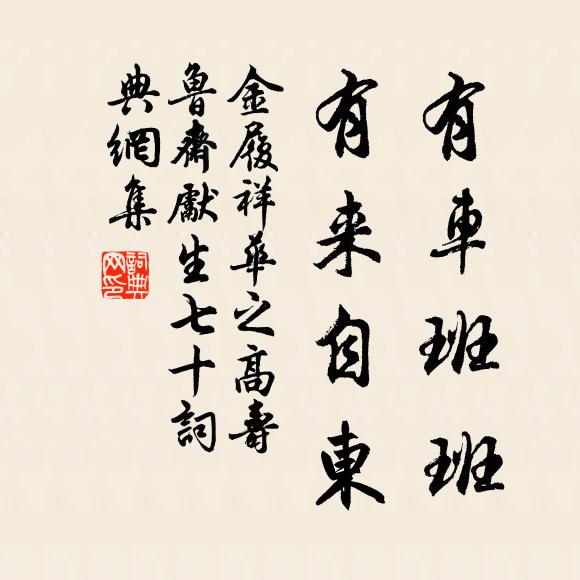 有車班班
有来自東
金履祥華之高壽
魯齋獻生七十詞
典網集
詞典網印